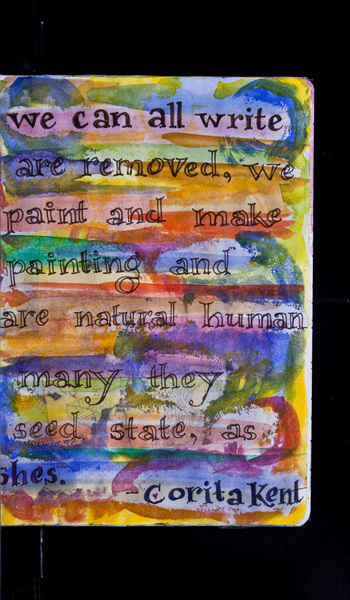 we can all write
are removed, we
paint and make
painting and
are natural human
many they
seed state, as
shes.
- Corita Kent